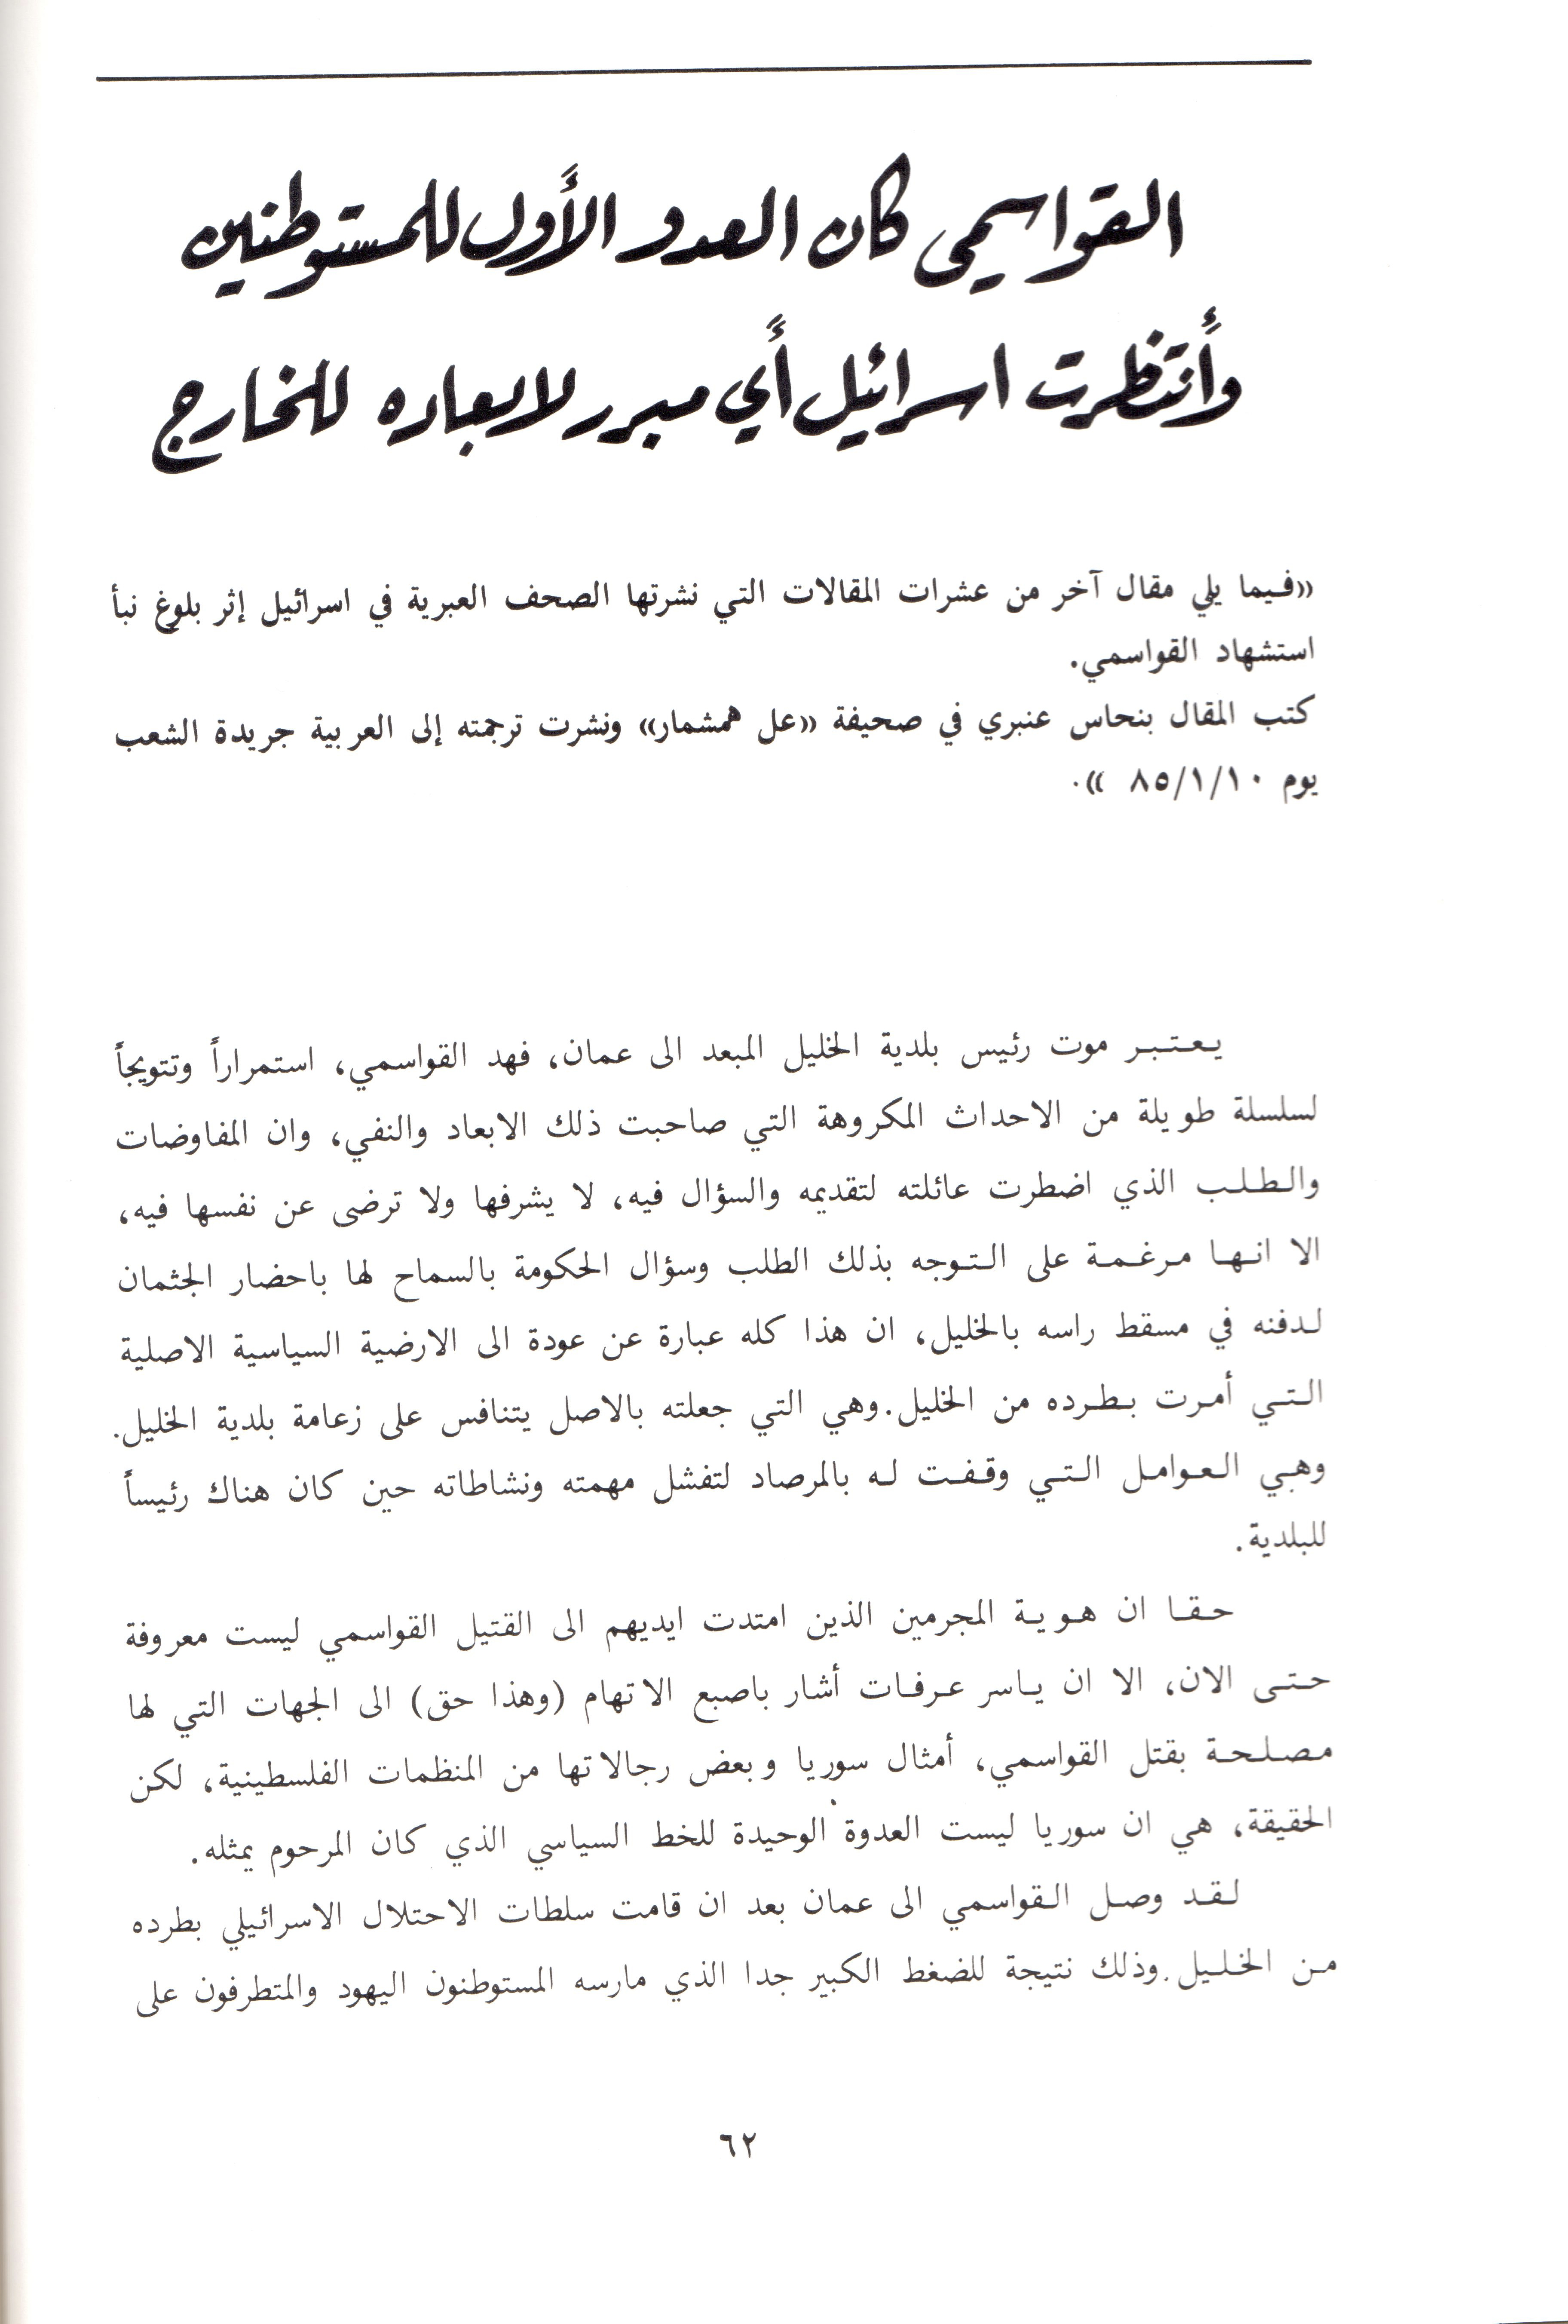 القواسمي كان العدو الأول للمستوطنين
وأنتظرت اسرائيل أي مبرر لابعاده للخارج
«فيما يلي مقال آخر من عشرات المقالات التي نشرتها الصحف العبرية في اسرائيل إثر بلوغ نبأ
استشهاد القواسمي.
كتب المقال بنحاس عنبري في صحيفة «عل همشمار» ونشرت ترجمته إلى العربية جريدة الشعب
يوم ٨٥/١/١٠ ».
يعتبر موت رئيس بلدية الخليل المبعد الى عمان، فهد القواسمي، استمراراً وتتويجاً
لسلسلة طويلة من الاحداث المكروهة التي صاحبت ذلك الابعاد والنفي، وان المفاوضات
والطلب الذي اضطرت عائلته لتقديمه والسؤال فيه، لا يشرفها ولا ترضى عن نفسها فيه،
الا انها مرغمة على التوجه بذلك الطلب وسؤال الحكومة بالسماح لها باحضار الجثمان
لدفنه في مسقط راسه بالخليل، ان هذا كله عبارة عن عودة الى الارضية السياسية الاصلية
التي أمرت بطرده من الخليل. وهي التي جعلته بالاصل يتنافس على زعامة بلدية الخليل.
وهي العوامل التي وقفت له بالمرصاد لتفشل مهمته ونشاطاته حين كان هناك رئيساً
للبلدية.
حقا ان هوية المجرمين الذين امتدت ايديهم الى القتيل القواسمي ليست معروفة
حتى الان، الا ان ياسر عرفات أشار باصبع الاتهام (وهذا حق) الى الجهات التي لها
مصلحة بقتل القواسمي، أمثال سوريا وبعض رجالاتها من المنظمات الفلسطينية، لكن
الحقيقة، هي ان سوريا ليست العدوة الوحيدة للخط السياسي الذي كان المرحوم يمثله.
لقد وصل القواسمي الى عمان بعد ان قامت سلطات الاحتلال الاسرائيلي بطرده
من الخليل. وذلك نتيجة للضغط الكبير جدا الذي مارسه المستوطنون اليهود والمتطرفون على
٦٢